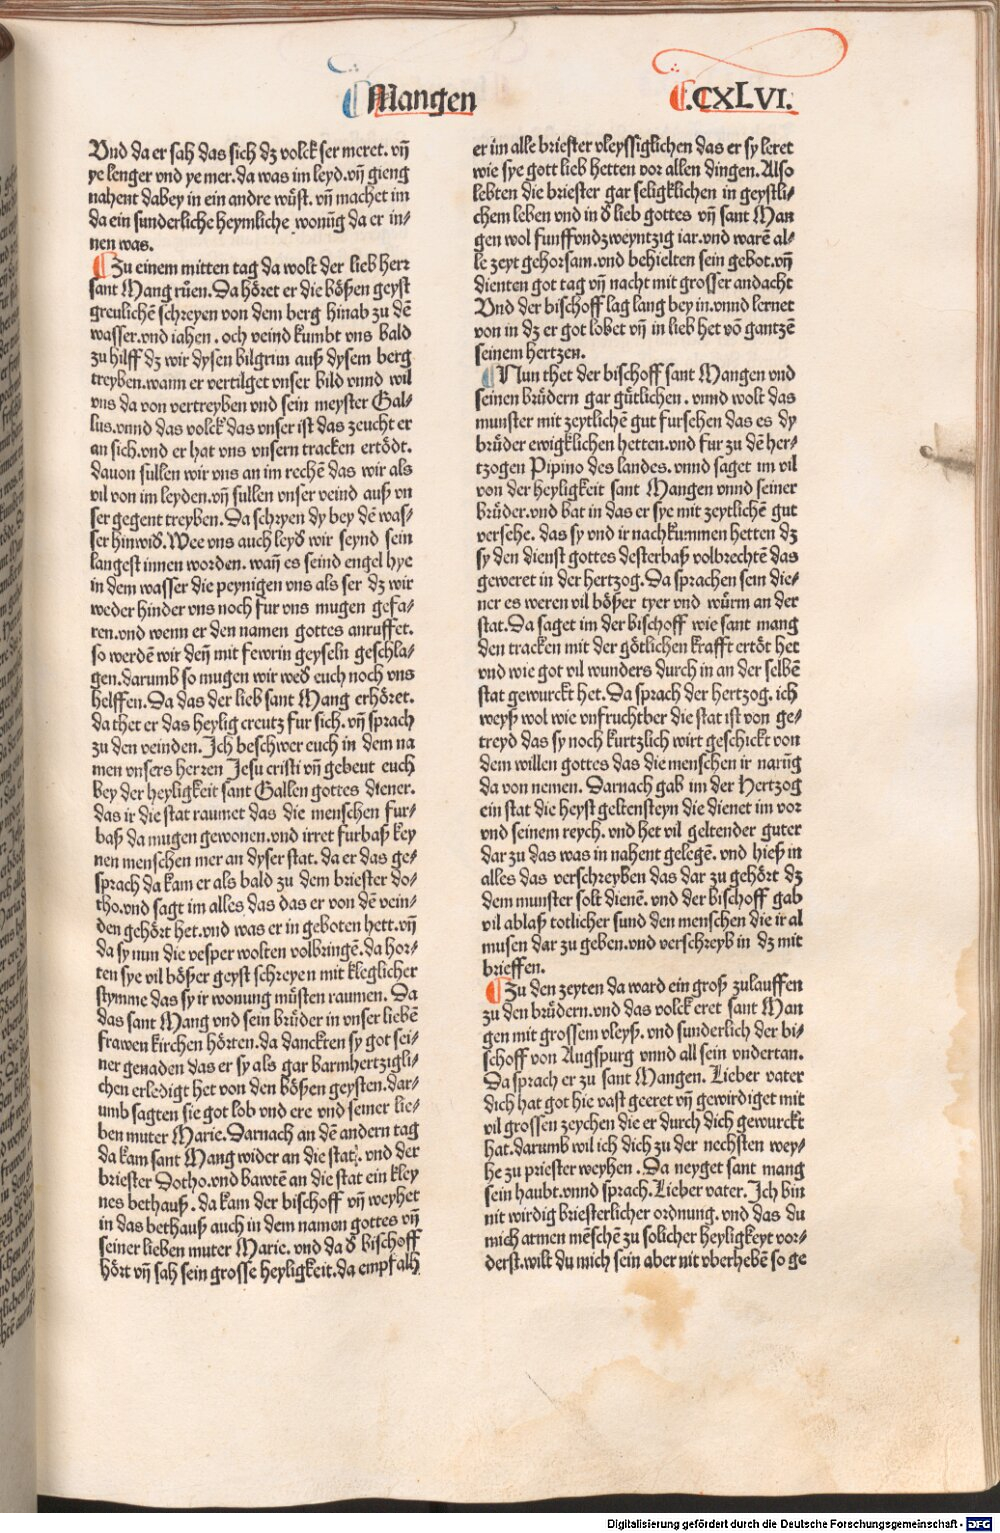 Mangen
.CXLVI.
Vnd da er sah das sich dz volck ser meret. vn̄
ye lenger vnd ye mer. da was im leyd. vn̄ gieng
nahent dabey in ein andre wuͤst. vn̄ machet im
da ein sunderliche heymliche wonūg da er in⸗
nen was.
Zu einem mitten tag da wolt der lieb herr
sant Mang ruͤen. Da hoͤret er die boͤßen geyst
greulichē schreyen von dem berg hinab zu dē
wasser. vnd iahen. och veind kumbt vns bald
zu hilff dz wir dysen bilgrim auß dysem berg
treyben. wann er vertilget vnser bild vnnd wil
vns da von vertreyben vnd sein meyster Gal⸗
lus. vnnd das volck das vnser ist das zeucht er
an sich. vnd er hat vns vnsern tracken ertoͤdt.
dauon sullen wir vns an im rechē das wir als
vil von im leyden. vn̄ sullen vnser veind auß vn
ser gegent treyben. Da schryen dy bey dē was⸗
ser hinwiđ. Wee vns auch leyđ wir seynd sein
langest innen worden. wan̄ es seind engel hye
in dem wasser die peynigen vns als ser dz wir
weder hinder vns noch fur vns mugen gefa⸗
ren. vnd wenn er den namen gottes anruffet.
so werdē wir den̄ mit fewrin geyseln geschla⸗
gen. darumb so mugen wir weđ euch noch vns
helffen. Da das der lieb sant Mang erhoͤret.
da thet er das heylig creutz fur sich. vn̄ sprach
zu den veinden. Ich beschwer euch in dem na
men vnsers herren Jesu cristi vn̄ gebeut euch
bey der heyligkeit sant Gallen gottes diener.
das ir die stat raumet das die menschen fur⸗
baß da mugen gewonen. vnd irret furbaß key
nen menschen mer an dyser stat. da er das ge⸗
sprach da kam er als bald zu dem briester do⸗
tho. vnd sagt im alles das das er von dē vein⸗
den gehoͤrt het. vnd was er in geboten hett. vn̄
da sy nun die vesper wolten volbringē. da hor⸗
ten sye vil boͤßer geyst schreyen mit kleglicher
stymme das sy ir wonung muͤsten raumen. Da
das sant Mang vnd sein bruͤder in vnser liebē
frawen kirchen hoͤrten. da danckten sy got sei⸗
ner genaden das er sy als gar barmhertzigli⸗
chen erledigt het von den boͤßen geysten. dar⸗
umb sagten sie got lob vnd ere vnd seiner lie⸗
ben muter Marie. Darnach an dē andern tag
da kam sant Mang wider an die stat. vnd der
briester Dotho. vnd bawtē an die stat ein kley
nes bethauß. da kam der bischoff vn̄ weyhet
in das bethauß auch in dem namen gottes vn̄
seiner lieben muter Marie. vnd da đ bischoff
hoͤrt vn̄ sah sein grosse heyligkeit. da empfalh
er im alle briester vleyssiglichen das er sy leret
wie sye gott lieb hetten vor allen dingen. Also
lebten die briester gar seligklichen in geystli⸗
chem leben vnd in đ lieb gottes vn̄ sant Man
gen wol funffvndzweyntzig iar. vnd warē al⸗
le zeyt gehorsam. vnd behielten sein gebot. vn̄
dienten got tag vn̄ nacht mit grosser andacht
Vnd der bischoff lag lang bey in. vnnd lernet
von in dz er got lobet vn̄ in lieb het vō gantzē
seinem hertzen.
Nun thet der bischoff sant Mangen vnd
seinen bruͤdern gar guͤtlichen. vnnd wolt das
munster mit zeytlichē gut fursehen das es dy
bruͤder ewigklichen hetten. vnd fur zu dē her⸗
tzogen Pipino des landes. vnnd saget im vil
von der heyligkeit sant Mangen vnnd seiner
bruͤder. vnd bat in das er sye mit zeytlichē gut
versehe. das sy vnd ir nachkummen hetten dz
sy den dienst gottes desterbaß volbrechtē das
geweret in der hertzog. Da sprachen sein die⸗
ner es weren vil boͤßer tyer vnd wuͤrm an der
stat. Da saget im der bischoff wie sant mang
den tracken mit der goͤtlichen krafft ertoͤt het
vnd wie got vil wunders durch in an der selbē
stat gewurckt het. Da sprach der hertzog. ich
weyß wol wie vnfruchtber die stat ist von ge⸗
treyd das sy noch kurtzlich wirt geschickt von
dem willen gottes das die menschen ir narūg
da von nemen. Darnach gab im der Hertzog
ein stat die heyst geltensteyn die dienet im vor
vnd seinem reych. vnd het vil geltender guter
dar zu das was in nahent gelegē. vnd hieß in
alles das verschreyben das dar zu gehoͤrt dz
dem munster solt dienē. vnd der bischoff gab
vil ablaß totlicher sund den menschen die ir al
musen dar zu geben. vnd verschreyb in dz mit
brieffen.
Zu den zeyten da ward ein groß zulauffen
zu den bruͤdern. vnd das volck eret sant Man
gen mit grossem vleyß. vnd sunderlich der bi⸗
schoff von Augspurg vnnd all sein vndertan.
Da sprach er zu sant Mangen. Lieber vater
dich hat got hie vast geeret vn̄ gewirdiget mit
vil grossen zeychen die er durch dich gewurckt
hat. darumb wil ich dich zu der nechsten wey⸗
he zu priester weyhen. Da neyget sant mang
sein haubt. vnnd sprach. Lieber vater. Ich bin
nit wirdig briesterlicher ordnung. vnd das du
mich armen mēschē zu solicher heyligkeyt vor⸗
derst. wilt du mich sein aber nit vberhebē so ge
Digitalisierung gefördert durch die Deutsche Forschungsgemeinschaft - DFG